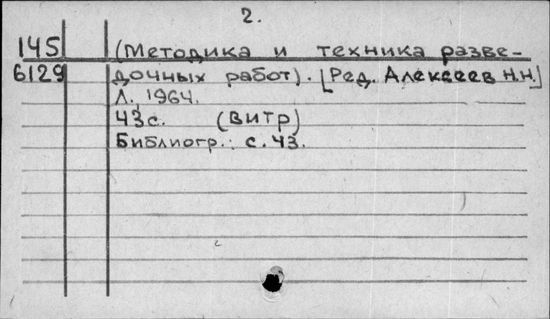 2.
145 (Методика и техника разве-
6129 дочных работ). [Ред. Алексеев Н.Н.]
Л. 1964.
43с. (ВИТР)
Библиогр.: с. 43.